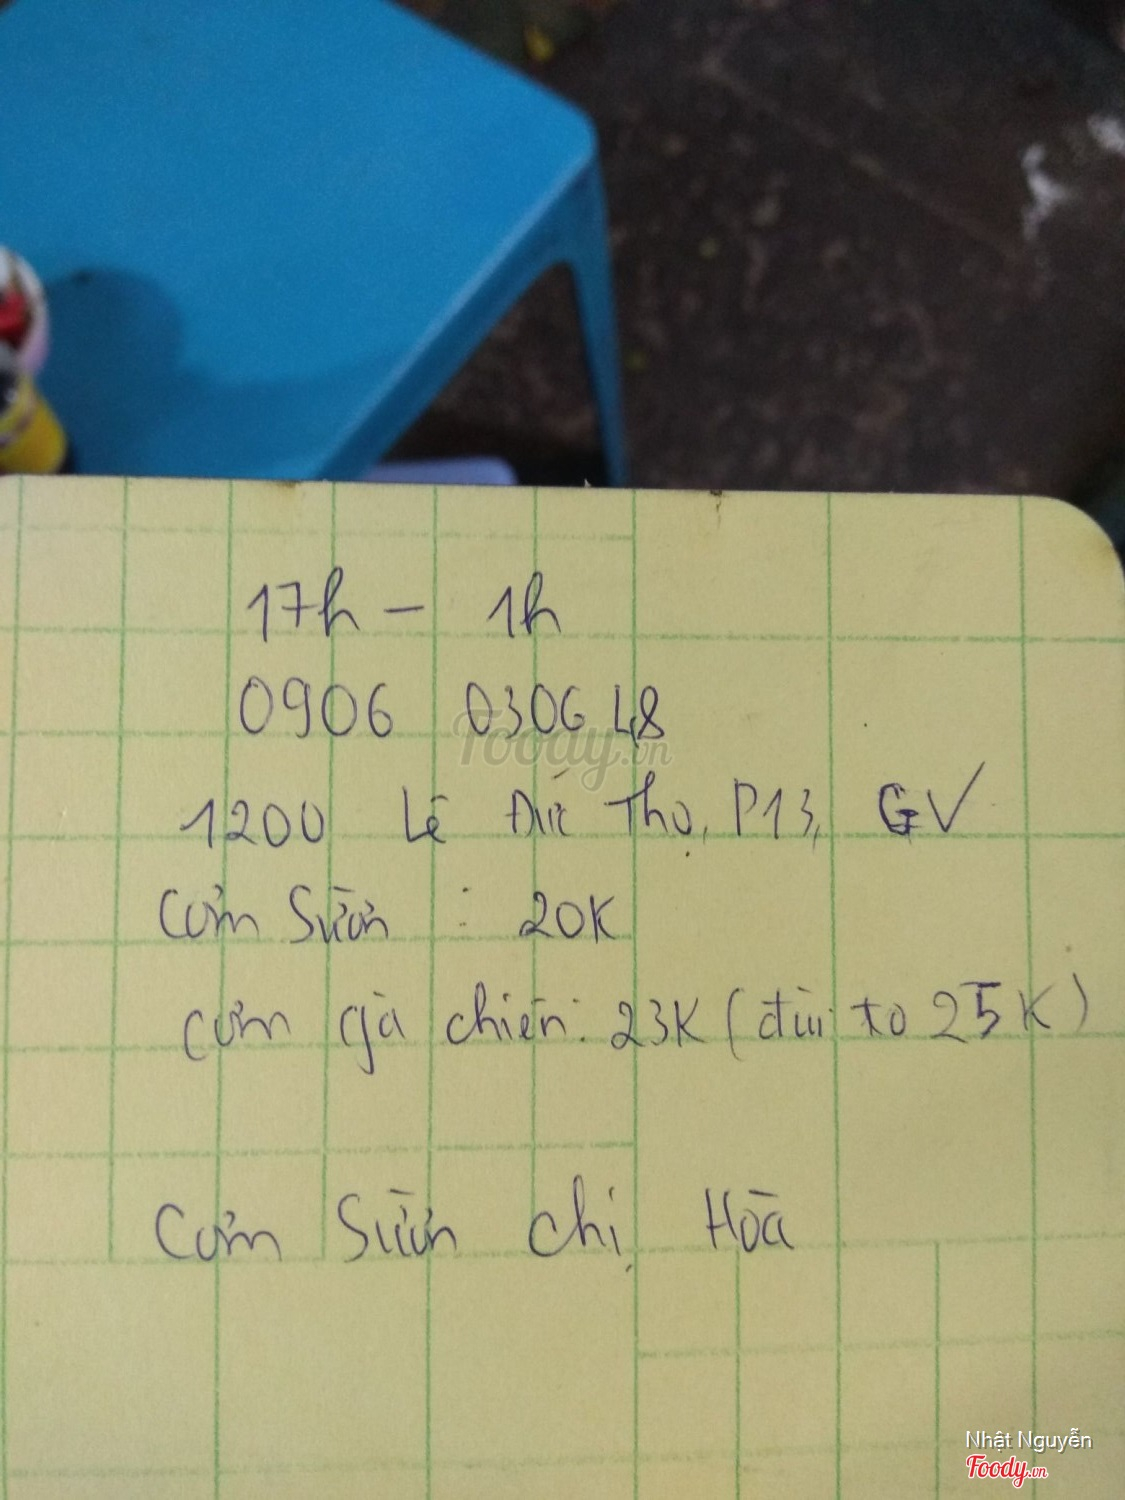 17h - 1h
0906 030648
Foody.vn
1200 Lê Đức Thọ, P13, GV
Cơm Sườn : 20K
cơm gà chiên: 23K (đùi to 25K)
Cơm Sườn chị Hòa
Nhật Nguyễn
Foody.vn